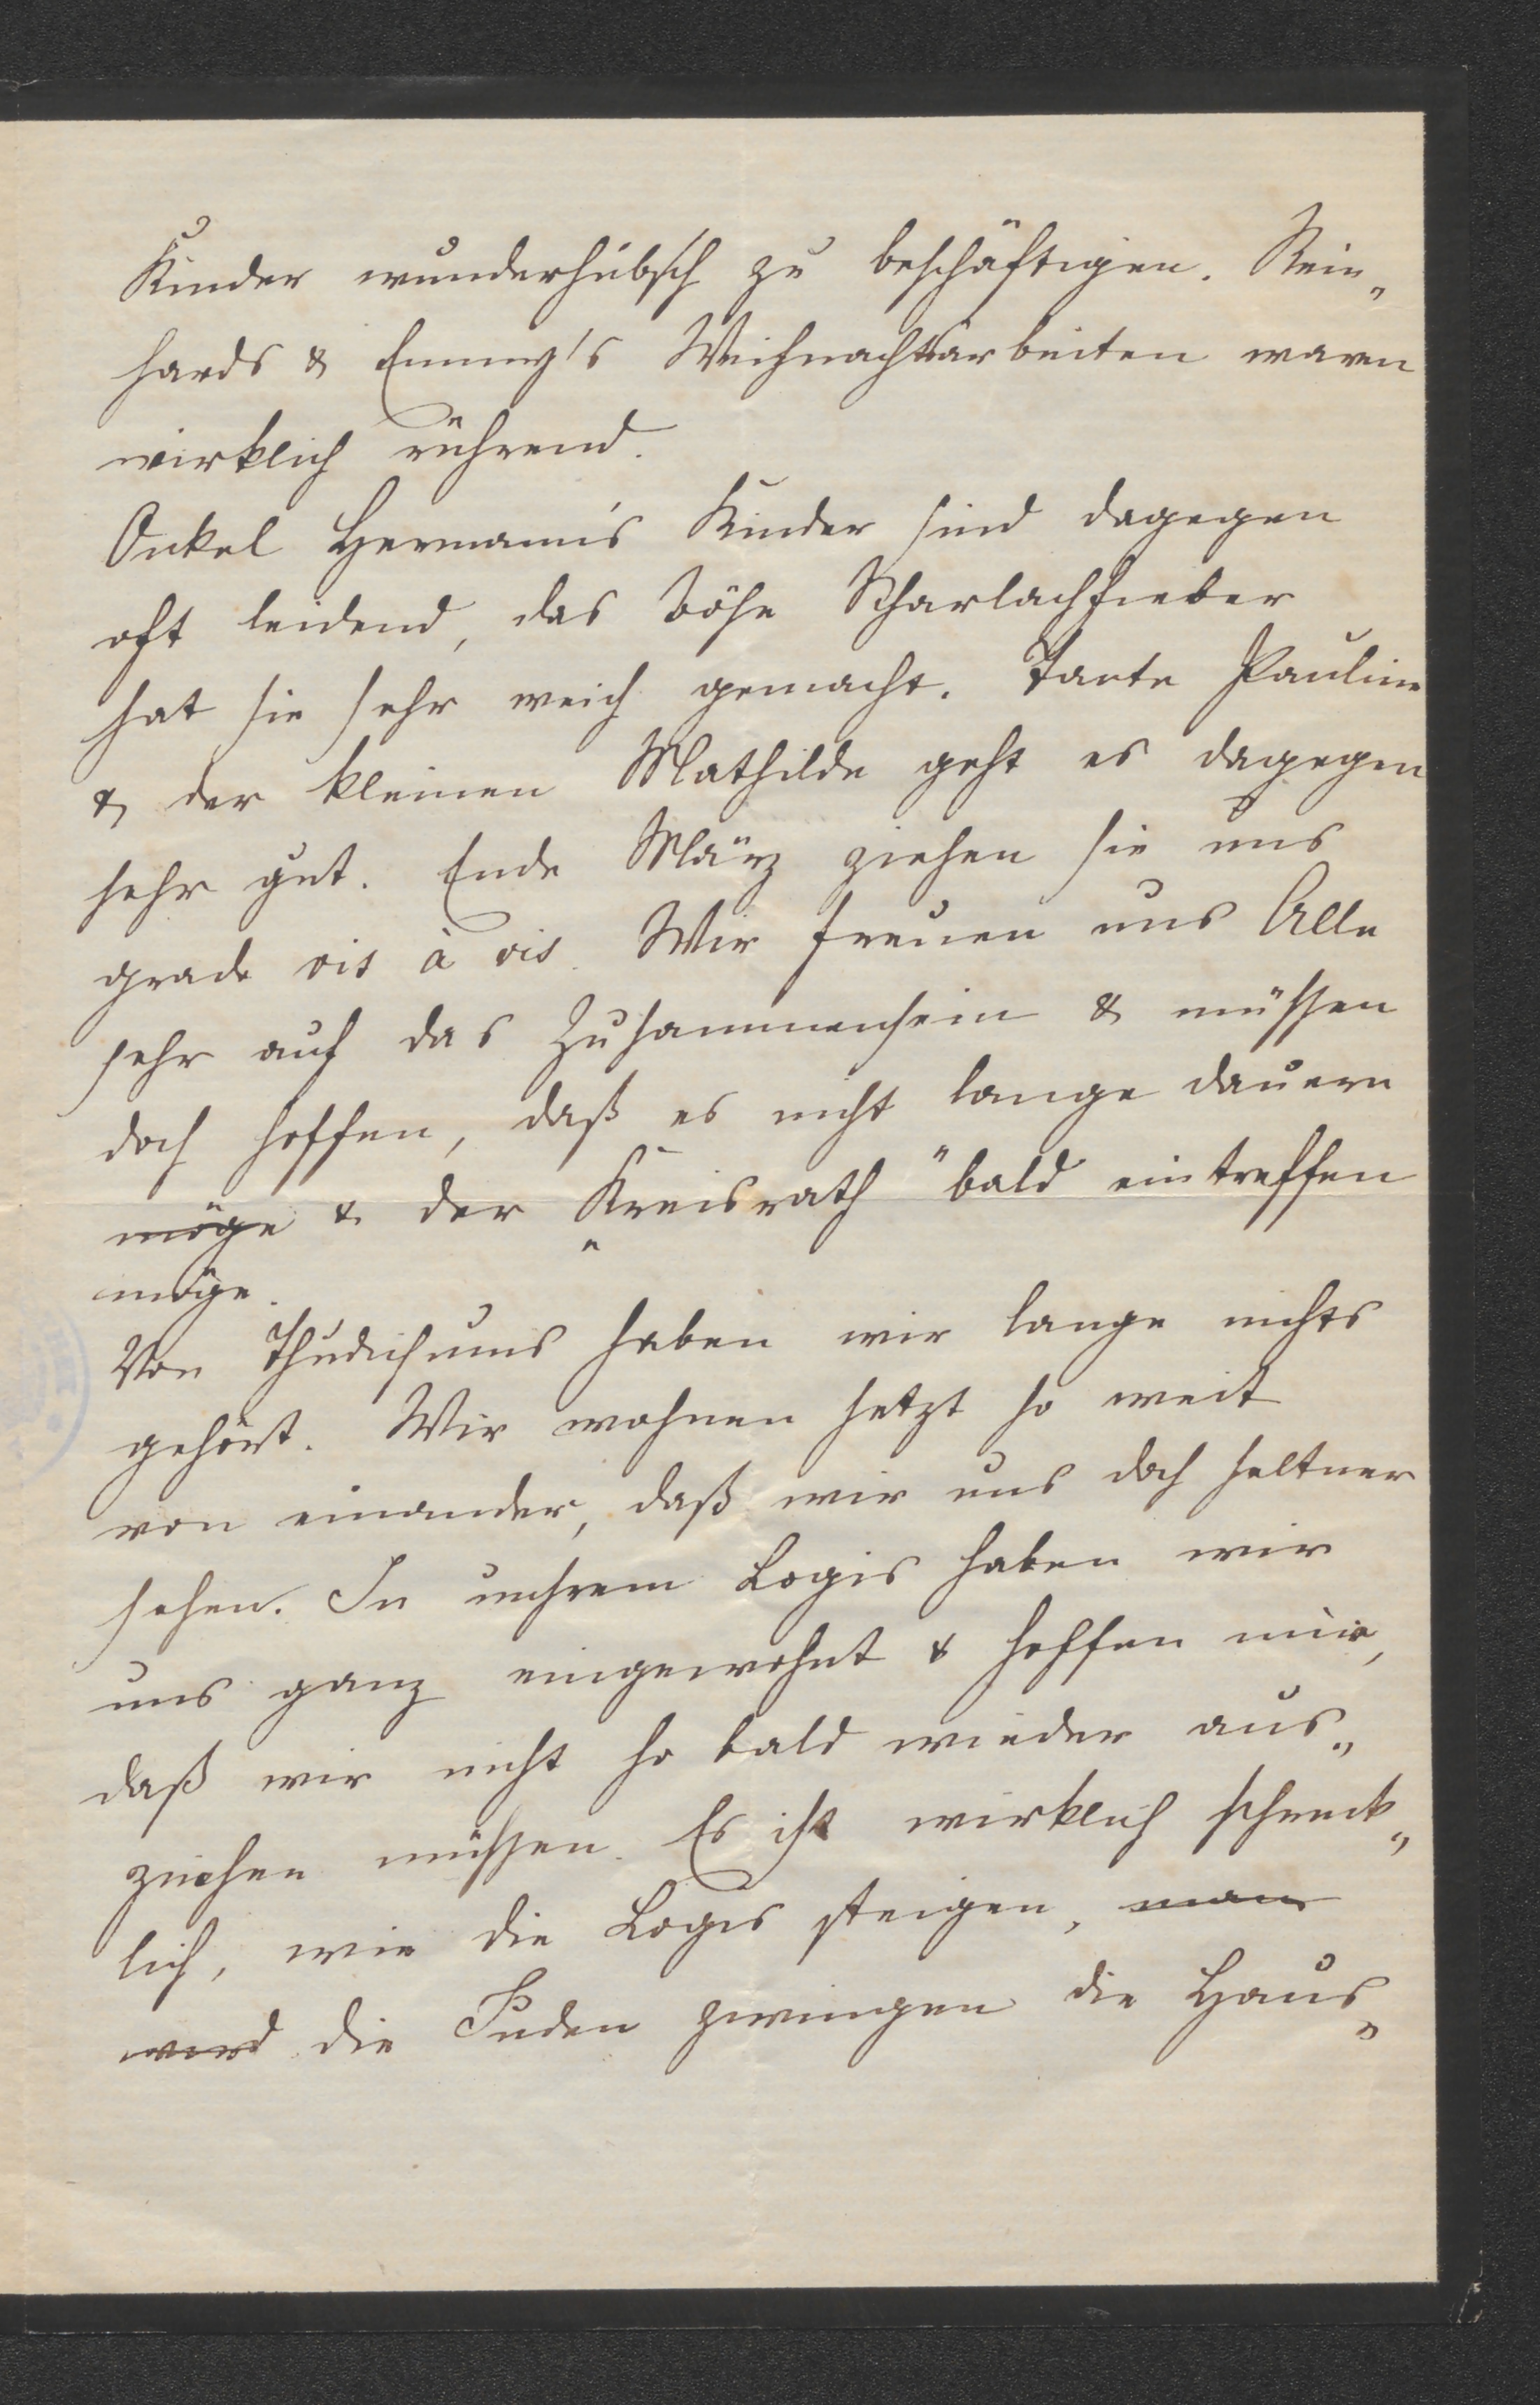 Kinder wunderhübsch zu beschäftigen. Rein„
hards & Emmy's Weihnachtsarbeiten waren
wirklich rührend.
Onkel Hermann's Kinder sind dagegen
oft leidend, das böse Scharlachfieber
hat sie sehr weich gemacht. Tante Pauline
& der kleinen Mathilde geht es dagegen
sehr gut. Ende März ziehen sie uns
grade vis à vis. Wir freuen uns Alle
sehr auf das Zusammensein & müssen
doch hoffen, daß es nicht lange dauern
möge & der „Kreisrath" bald eintreffen
möge.
Von Thudichums haben wir lange nichts
gehört. Wir wohnen jetzt so weit
von einander, daß wir uns doch seltner
sehen. In unsrem Logis haben wir
uns ganz eingewohnt & hoffen nur,
daß wir nicht so bald wieder aus„
ziehen müssen. Es ist wirklich schreck„
lich, wie die Logis steigen, man
wird die Juden zwingen die Haus„